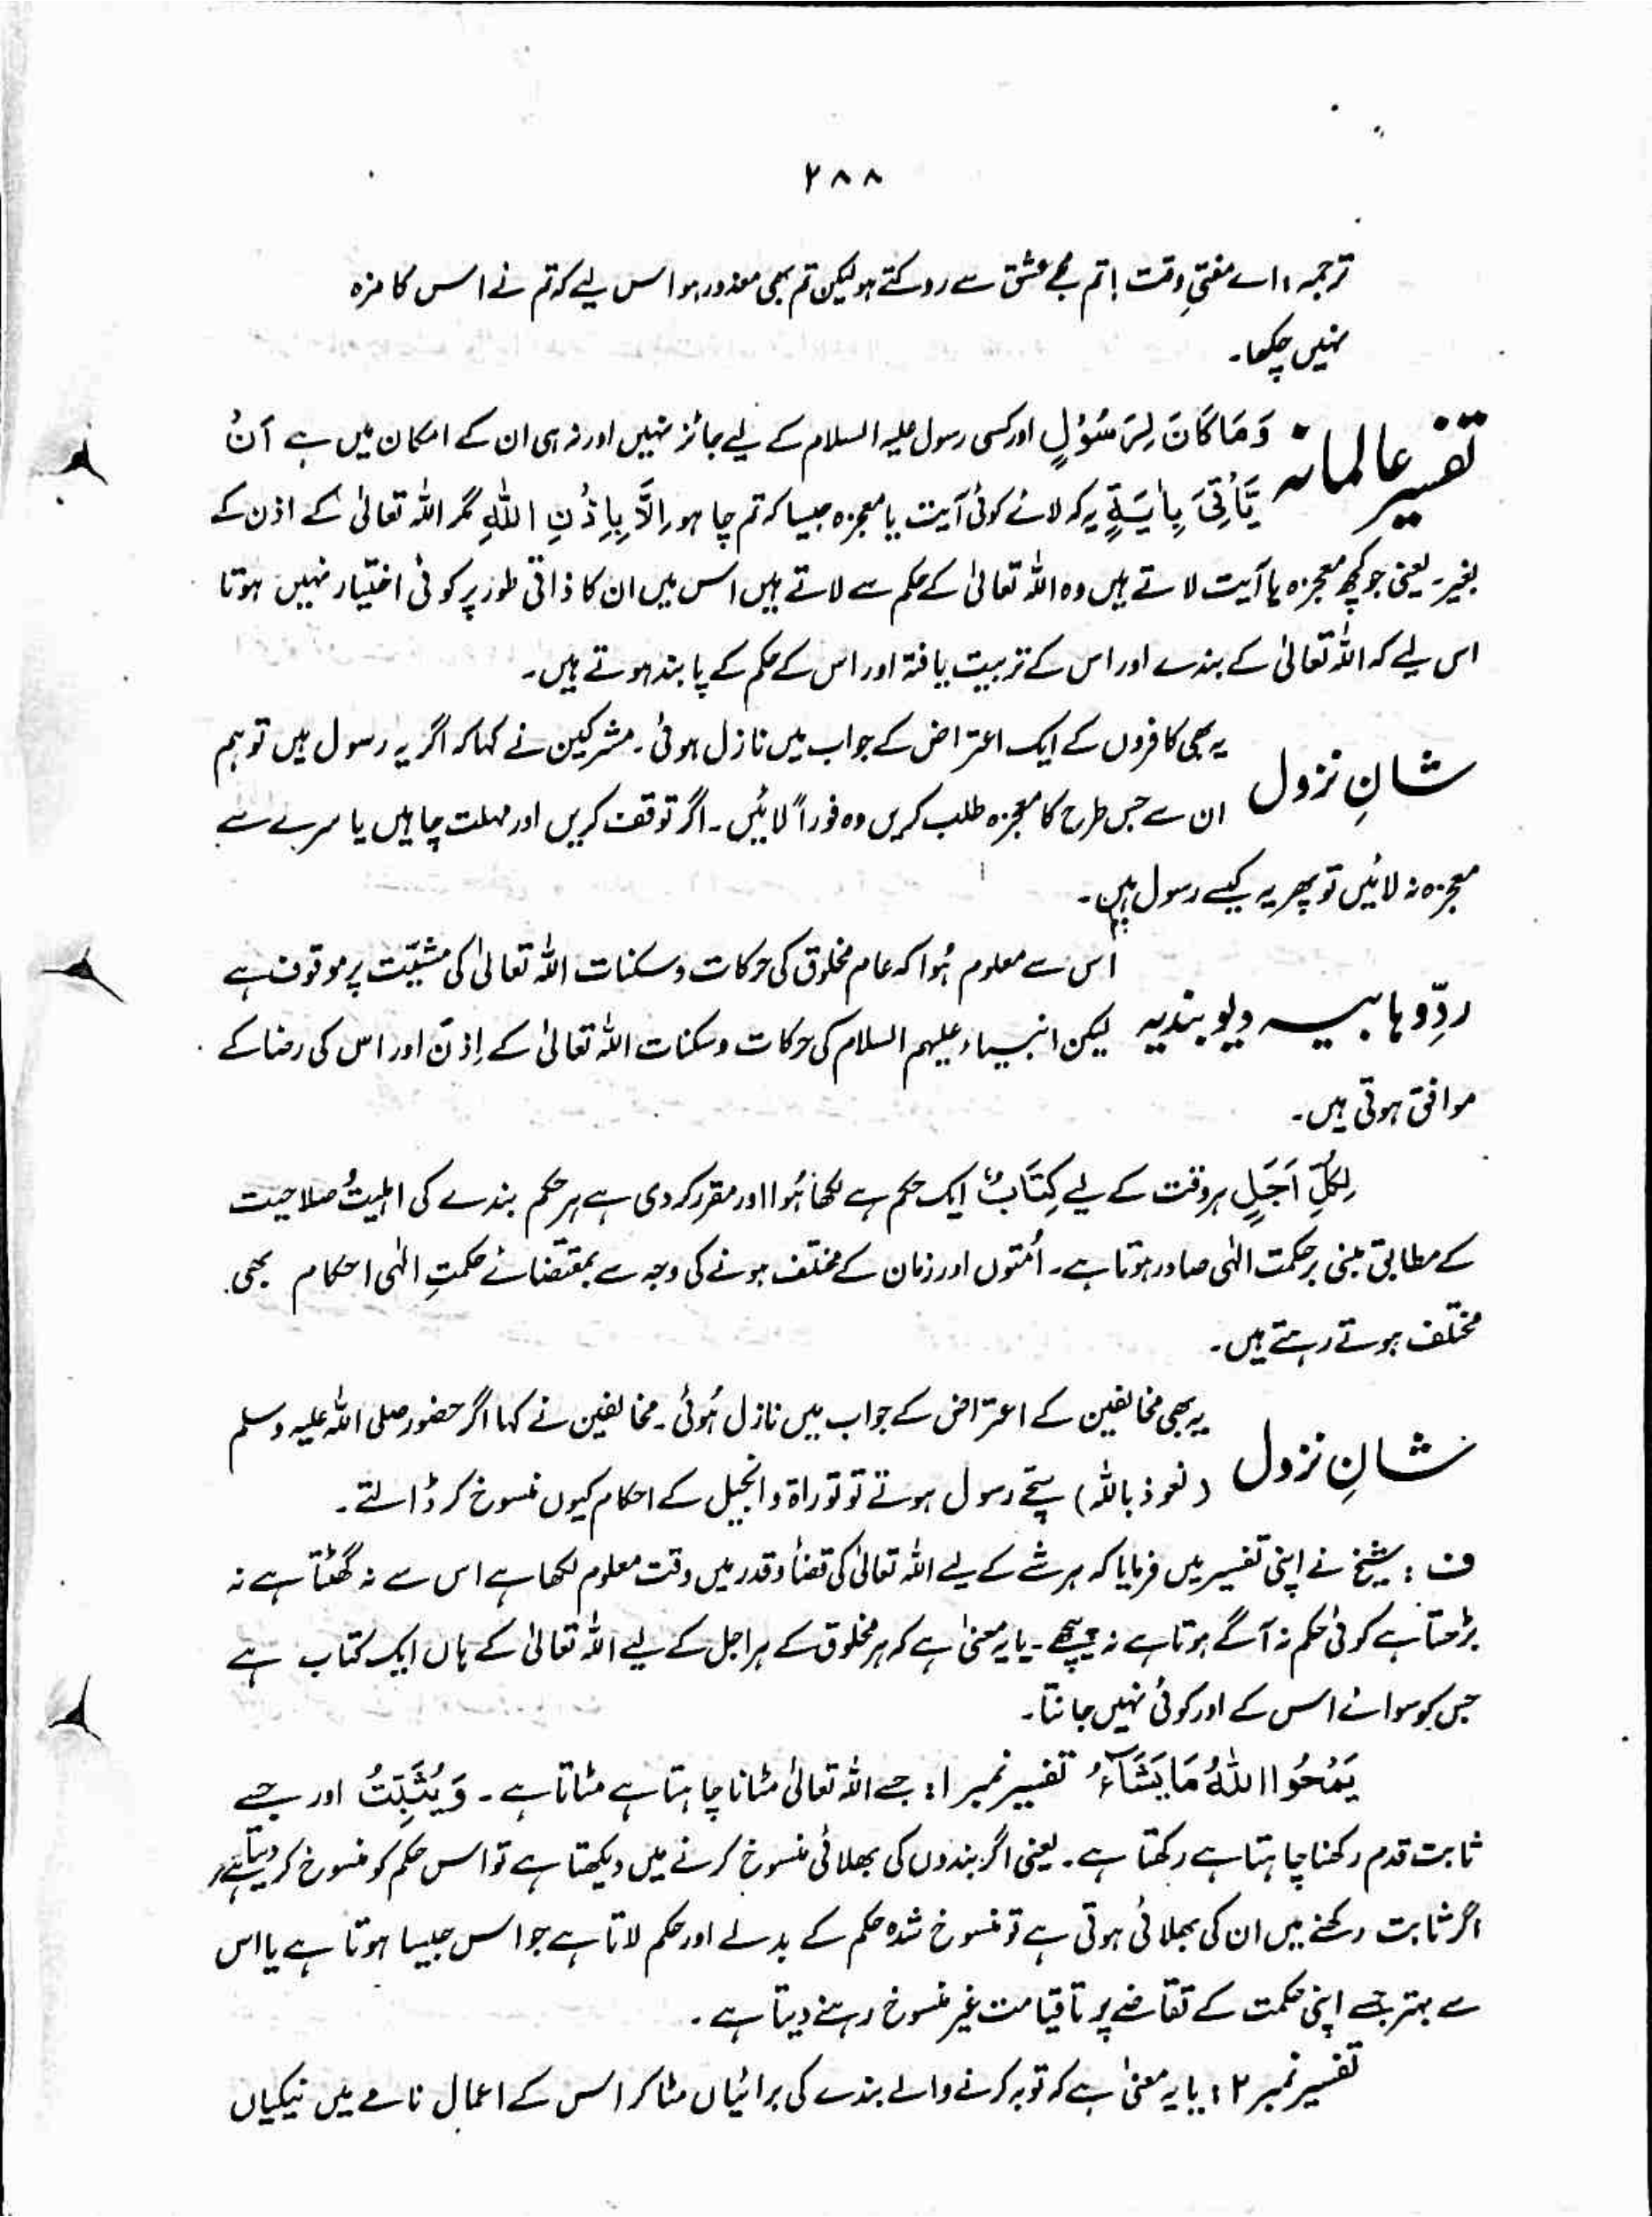 ۲۸۸
ترجمہ: اے مفتیِ وقت! تم مجھے عشق سے روکتے ہو لیکن تم بھی معذور ہو اس لیے کہ تم نے اس کا مزہ
نہیں چکھا۔
تفسیر عالمانہ وَمَا كَانَ لِرَسُوْلٍ اور کسی رسول علیہ السلام کے لیے جائز نہیں اور نہ ہی ان کے امکان میں ہے اَنْ
يَّاْتِيَ بِاٰيَةٍ یہ کہ لائے کوئی آیت یا معجزہ جیسا کہ تم چاہو اِلَّا بِاِذْنِ اللّٰهِ مگر اللہ تعالیٰ کے اذن کے
بغیر۔ یعنی جو کچھ معجزہ یا آیت لاتے ہیں وہ اللہ تعالیٰ کے حکم سے لاتے ہیں اس میں ان کا ذاتی طور پر کوئی اختیار نہیں ہوتا
اس لیے کہ اللہ تعالیٰ کے بندے اور اس کے تربیت یافتہ اور اس کے حکم کے پابند ہوتے ہیں۔
شانِ نزول یہ بھی کافروں کے ایک اعتراض کے جواب میں نازل ہوئی۔ مشرکین نے کہا کہ اگر یہ رسول ہیں تو ہم
ان سے جس طرح کا معجزہ طلب کریں وہ فوراً لائیں۔ اگر توقف کریں اور مہلت چاہیں یا سرے سے
معجزہ نہ لائیں تو پھر یہ کیسے رسول ہیں۔
ردِّ وہابیہ دیوبندیہ اس سے معلوم ہُوا کہ عام مخلوق کی حرکات و سکنات اللہ تعالیٰ کی مشیّت پر موقوف ہے
لیکن انبیاء علیہم السلام کی حرکات و سکنات اللہ تعالیٰ کے اِذن اور اس کی رضا کے
موافق ہوتی ہیں۔
لِكُلِّ اَجَلٍ ہر وقت کے لیے كِتَابٌ ایک حکم ہے لکھا ہُوا اور مقرر کردی ہے ہر حکم بندے کی اہلیت و صلاحیت
کے مطابق مبنی بر حکمت الٰہی صادر ہوتا ہے۔ اُمتوں اور زمان کے مختلف ہونے کی وجہ سے بمقتضائے حکمتِ الٰہی احکام بھی
مختلف ہوتے رہتے ہیں۔
شانِ نزول یہ بھی مخالفین کے اعتراض کے جواب میں نازل ہُوئی۔ مخالفین نے کہا اگر حضور صلی اللہ علیہ وسلم
(نعوذ باللہ) سچے رسول ہوتے تو توراۃ و انجیل کے احکام کیوں منسوخ کر ڈالتے۔
ف: شیخ نے اپنی تفسیر میں فرمایا کہ ہر شے کے لیے اللہ تعالیٰ کی قضأ و قدر میں وقت معلوم لکھا ہے اس سے نہ گھٹتا ہے نہ
بڑھتا ہے کوئی حکم نہ آگے ہوتا ہے نہ پیچھے۔ یا یہ معنیٰ ہے کہ ہر مخلوق کے ہر اجل کے لیے اللہ تعالیٰ کے ہاں ایک کتاب ہے
جس کو سوائے اس کے اور کوئی نہیں جانتا۔
يَمْحُوا اللّٰهُ مَا يَشَآءُ تفسیر نمبر ۱: جسے اللہ تعالیٰ مٹانا چاہتا ہے مٹاتا ہے۔ وَيُثْبِتُ اور جسے
ثابت قدم رکھنا چاہتا ہے رکھتا ہے۔ یعنی اگر بندوں کی بھلائی منسوخ کرنے میں دیکھتا ہے تو اس حکم کو منسوخ کر دیتا ہے
اگر ثابت رکھنے میں ان کی بھلائی ہوتی ہے تو منسوخ شدہ حکم کے بدلے اور حکم لاتا ہے جو اس جیسا ہوتا ہے یا اس
سے بہتر جسے اپنی حکمت کے تقاضے پر تا قیامت غیر منسوخ رہنے دیتا ہے۔
تفسیر نمبر ۲: یا یہ معنیٰ ہے کہ توبہ کرنے والے بندے کی برائیاں مٹا کر اس کے اعمال نامے میں نیکیاں